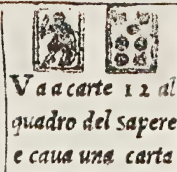 Va a carte 12 al
quadro del sapere
e caua una carta